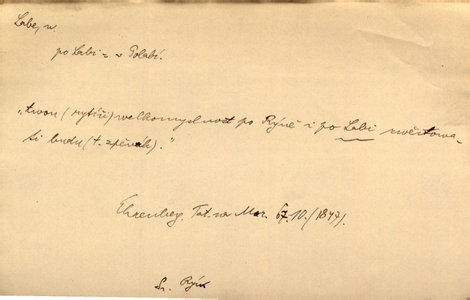 Labe, n
po Labi = v Polabí.
„twou (rytíři) welkomyslnost po Rýně i po Labi zwěstowa-
ti budu (t. zpěvák)."
Ehrenberg, Tat. na Mor. 67. 10. (1847).
Sr. Rýn